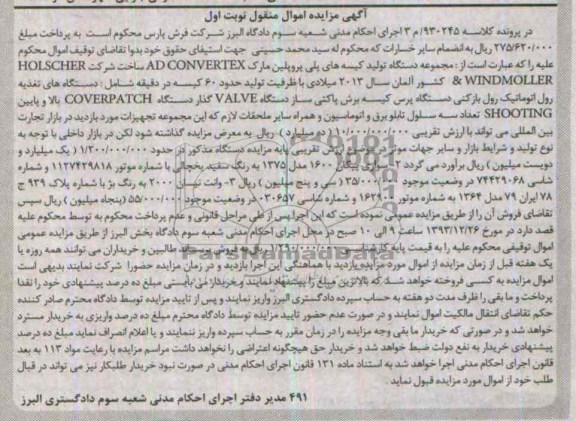 آگهی مزایده اموال منقول نوبت اول
در پرونده کلاسه ۹۳۰۲۴۵/م ۳ اجرای احکام مدنی شعبه سوم دادگاه البرز شرکت فرش پارس محکوم است به پرداخت مبلغ
۲۷۵/۶۲۰/۰۰۰ ریال به انضمام سایر خسارات که محکوم له سید محمد حسینی جهت استیفای حقوق خود بدوا تقاضای توقیف اموال محکوم
علیه را که عبارت است از : مجموعه دستگاه تولید کیسه های پلی پروپلین مارک AD CONVERTEX ساخت شرکت HOLSCHER
& WINDMOLLER کشور آلمان سال ۲۰۱۳ میلادی با ظرفیت تولید حدود ۶۰ کیسه در دقیقه شامل : دستگاه های تغذیه
رول اتوماتیک رول بازکنی دستگاه پرس کیسه برش پاکتی ساز دستگاه VALVE گذار دستگاه COVERPATCH بالا و پایین
SHOOTING تعداد سه سلول تابلو برق و اتوماسیون و همراه سایر ملحقات لازم که این مجموعه تجهیزات مورد بازدید در بازار تجارت
بین المللی می تواند با ارزش تقریبی ۱۰/۰۰۰/۰۰۰/۰۰۰ ( ده میلیارد ) ریال به معرض مزایده گذاشته شود لکن در بازار داخلی با توجه به
نوع تولید و شرایط بازار و سایر جهات موثر در موضوع ارزش تقریبی پایه مزایده دستگاه مذکور در حدود ۱/۲۰۰/۰۰۰/۰۰۰ ( یک میلیارد و
دویست میلیون ) ریال برآورد می گردد ۲- سواری پیکان ۱۶۰۰ مدل ۱۳۷۵ به رنگ سفید یخچالی با شماره موتور ۱۱۲۷۴۲۹۸۱۸ و شماره
شاسی ۷۴۴۲۹۰۶۸ در وضعیت موجود ۳۵/۰۰۰/۰۰۰ ( سی و پنج میلیون ) ریال ۳- وانت نیسان ۲۰۰۰ به رنگ بژ با شماره پلاک ۹۳۹ ج
۷۸ ایران ۷۹ مدل ۱۳۶۴ به شماره موتور ۱۶۲۹ و شماره شاسی ۰۳۰۶۵۷ در وضعیت موجود ۵۵/۰۰۰/۰۰۰ (پنجاه میلیون) ریال سپس
تقاضای فروش آن را از طریق مزایده عمومی نموده است که این اجرا پس از طی مراحل قانونی و عدم پرداخت محکوم به توسط محکوم علیه
قصد دارد در مورخ ۱۳۹۳/۱۲/۲۶ ساعت ۹ الی ۱۰ صبح در محل اجرای احکام مدنی شعبه سوم دادگاه بخش البرز از طریق مزایده عمومی
اموال توقیفی محکوم علیه را به قیمت پایه کارشناسی ۱/۲۹۰/۰۰۰/۰۰۰ ریال به فروش برساند طالبین و خریداران می توانند همه روزه یا
یک هفته قبل از زمان مزایده از اموال مورد مزایده بازدید با هماهنگی این اجرا بازدید و در زمان مزایده حضورا شرکت نمایند بدیهی است
اموال مزایده به کسی فروخته خواهد شد که بالاترین مبلغ را پیشنهاد نمایند و خریدار می بایستی مبلغ ده درصد پیشنهادی خود را نقدا
پرداخت و ما بقی را ظرف مدت دو هفته به حساب سپرده دادگستری البرز واریز نمایند و پس از تایید مزایده توسط دادگاه محترم صادر کننده
حکم تقاضای انتقال مالکیت اموال نمایند و در صورت عدم حضور تایید مزایده توسط دادگاه محترم مبلغ ده درصد واریزی به خریدار مسترد
خواهد شد و در صورتی که خریدار ما بقی وجه مزایده را در زمان مقرر به حساب سپرده واریز ننمایند و یا اعلام انصراف نماید مبلغ ده درصد
پیشنهادی خریدار به نفع دولت ضبط خواهد شد و خریدار حق هیچگونه اعتراضی را نخواهد داشت مراسم مزایده با رعایت مواد ۱۱۳ به بعد
قانون اجرای احکام مدنی اجرا خواهد شد به استناد ماده ۱۳۱ قانون اجرای احکام مدنی در صورت نبود خریدار طلبکار نیز می تواند در قبال
طلب خود از اموال مورد مزایده قبول نماید
۴۹۱ مدیر دفتر اجرای احکام مدنی شعبه سوم دادگستری البرز